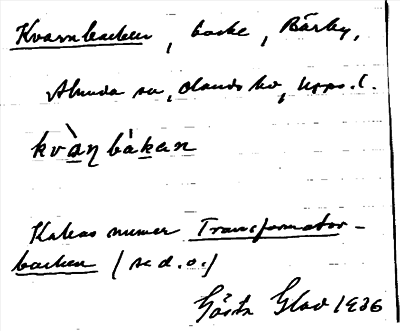 Kvarnbacken, backe, Bärby,
Almunda sn, Olands hd, Upps. l.
kvàɳbàkan
Kallas numer Transformator-
backen (se d. o.)
Gösta Glad 1936